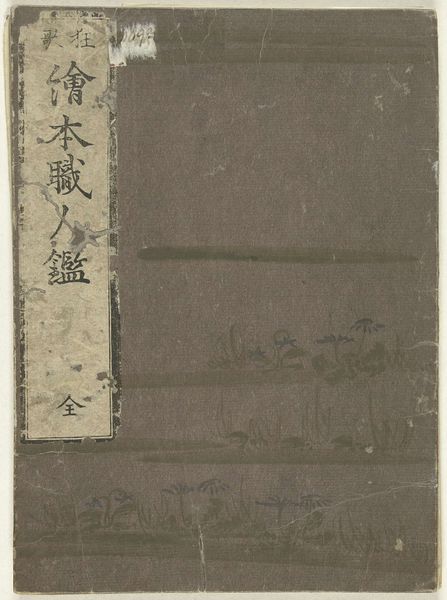 狂歌
繪本職人鑑
全